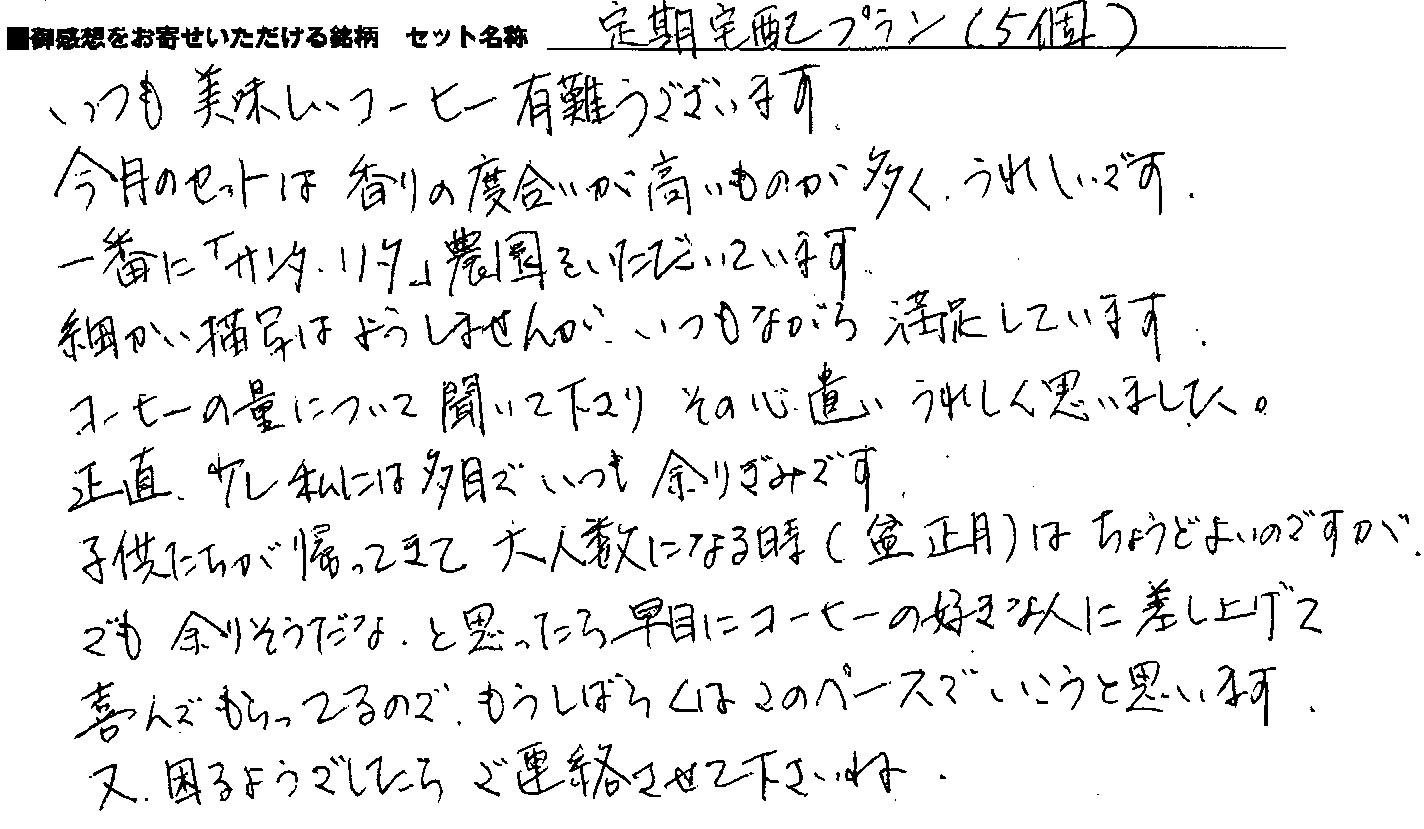 ■御感想をお寄せいただける銘柄 セット名称 定期宅配プラン(5個)
いつも美味しいコーヒー有難うございます.
今月のセットは香りの度合いが高いものが多く、うれしいです.
一番に「サンタ・リタ」農園をいただいています.
細かい描写はようしませんが、いつもながら満足しています.
コーヒーの量について聞いて下さり その心遣いうれしく思いました。
正直、少し私には多目でいつも余りぎみです.
子供たちが帰ってきて大人数になる時(盆正月)はちょうどよいのですが.
でも余りそうだな、と思ったら早目にコーヒーの好きな人に差し上げて
喜んでもらってるので、もうしばらくはこのペースでいこうと思います.
又、困るようでしたらご連絡させて下さいね.